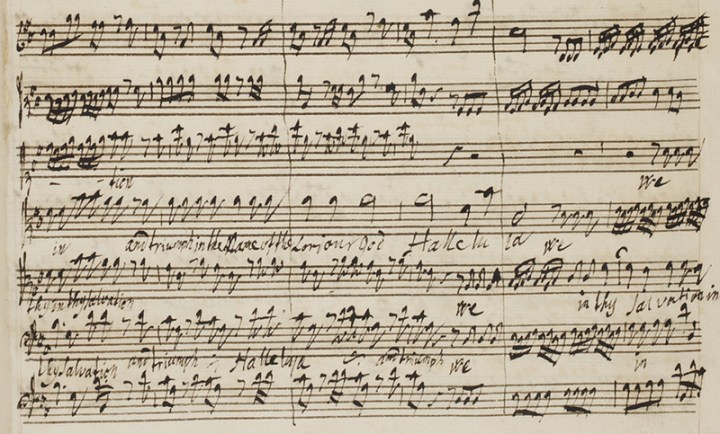 tion we
in and triumph in the Name of the Lord our God Hallelu ia we
thy in thy salvation we in thy Salvation in
thy salvation and triumph Halleluja and triumph we in